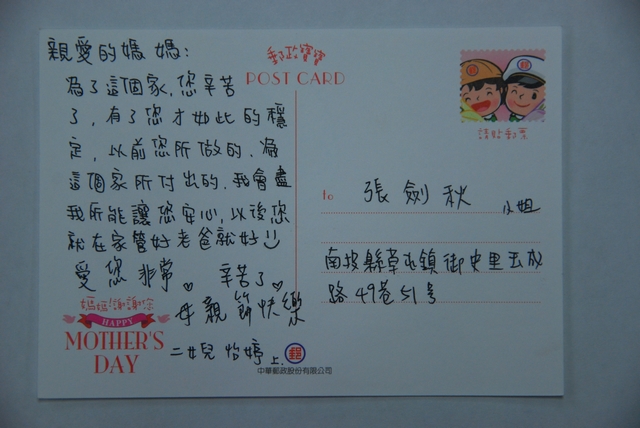 親愛的媽媽:
為了這個家,您辛苦
了,有了您才如此的穩
定,以前您所做的、為
這個家所付出的,我會盡
我所能讓您安心,以後您
就在家管好老爸就好
愛您 非常 辛苦了
母親節快樂
二女兒 怡婷 上.
媽媽!謝謝您
HAPPY
MOTHER'S
DAY
郵政寶寶
POST CARD
請貼郵票
to 張劍秋 小姐
南投縣草屯鎮御史里玉成
路49巷51号
郵
中華郵政股份有限公司